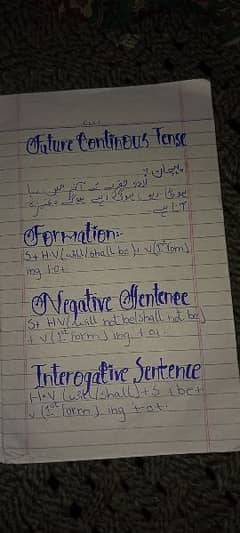 Future Continous Tense
پہچان :
اردو فقرے کے آخر میں
آتا ہے
Formation:-
S+ H.V (will/shall be) + V(1st form)
ing + o +
Negative Sentence
S+ H.V (will not be/shall not be)
+ V (1st form) ing + o+.
Interogative Sentence
H.V (will/shall) + S + be +
V (1st form) ing + o +.